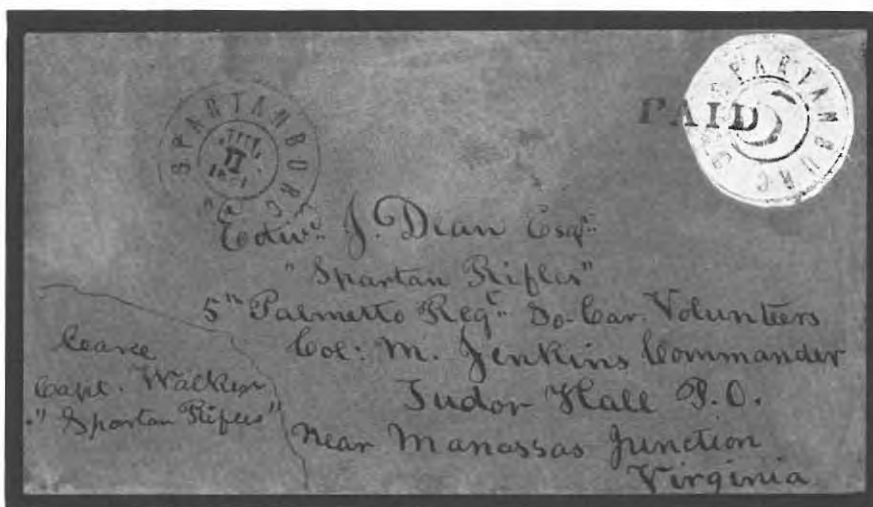 SPARTANBURG
11
1861
PAID
SPARTANBURG
Edwd. J. Dean Esqr.
"Spartan Rifles"
5th Palmetto Regt. So-Car. Volunteers
Col: M. Jenkins Commander
Tudor Hall P.O.
Near Manassas Junction
Virginia
Care
Capt. Walker
"Spartan Rifles"